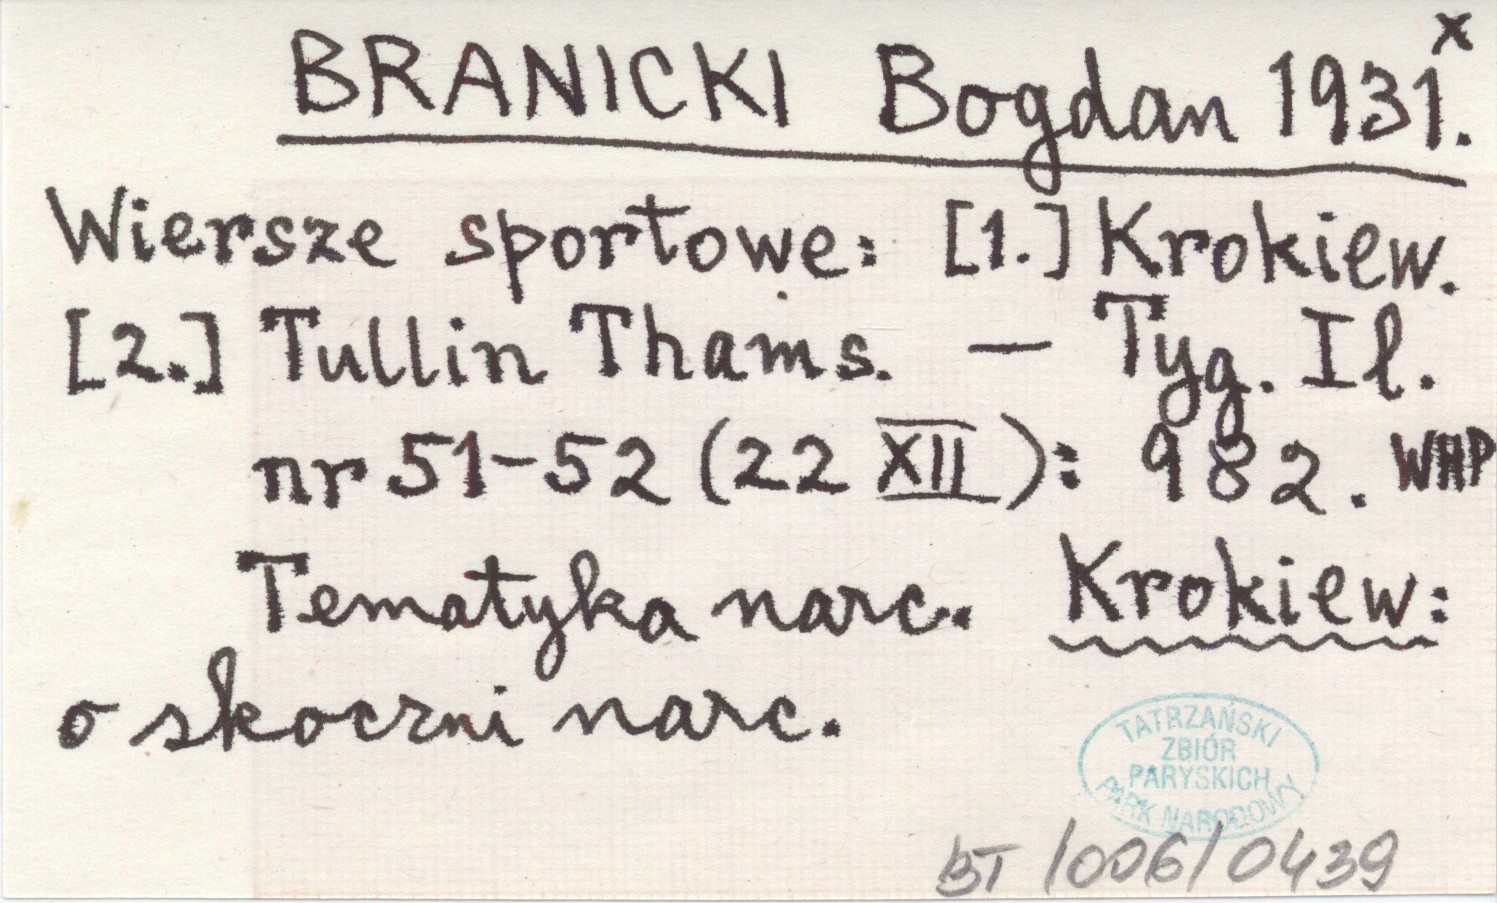 BRANICKI Bogdan 1931.x
Wiersze sportowe: [1.] Krokiew.
[2.] Tullin Thams. — Tyg. Il.
nr 51-52 (22 XII): 982. WHP
Tematyka narc. Krokiew:
o skoczni narc.
TATRZAŃSKI
ZBIÓR
PARYSKICH
PARK NARODOWY
BT/006/0439